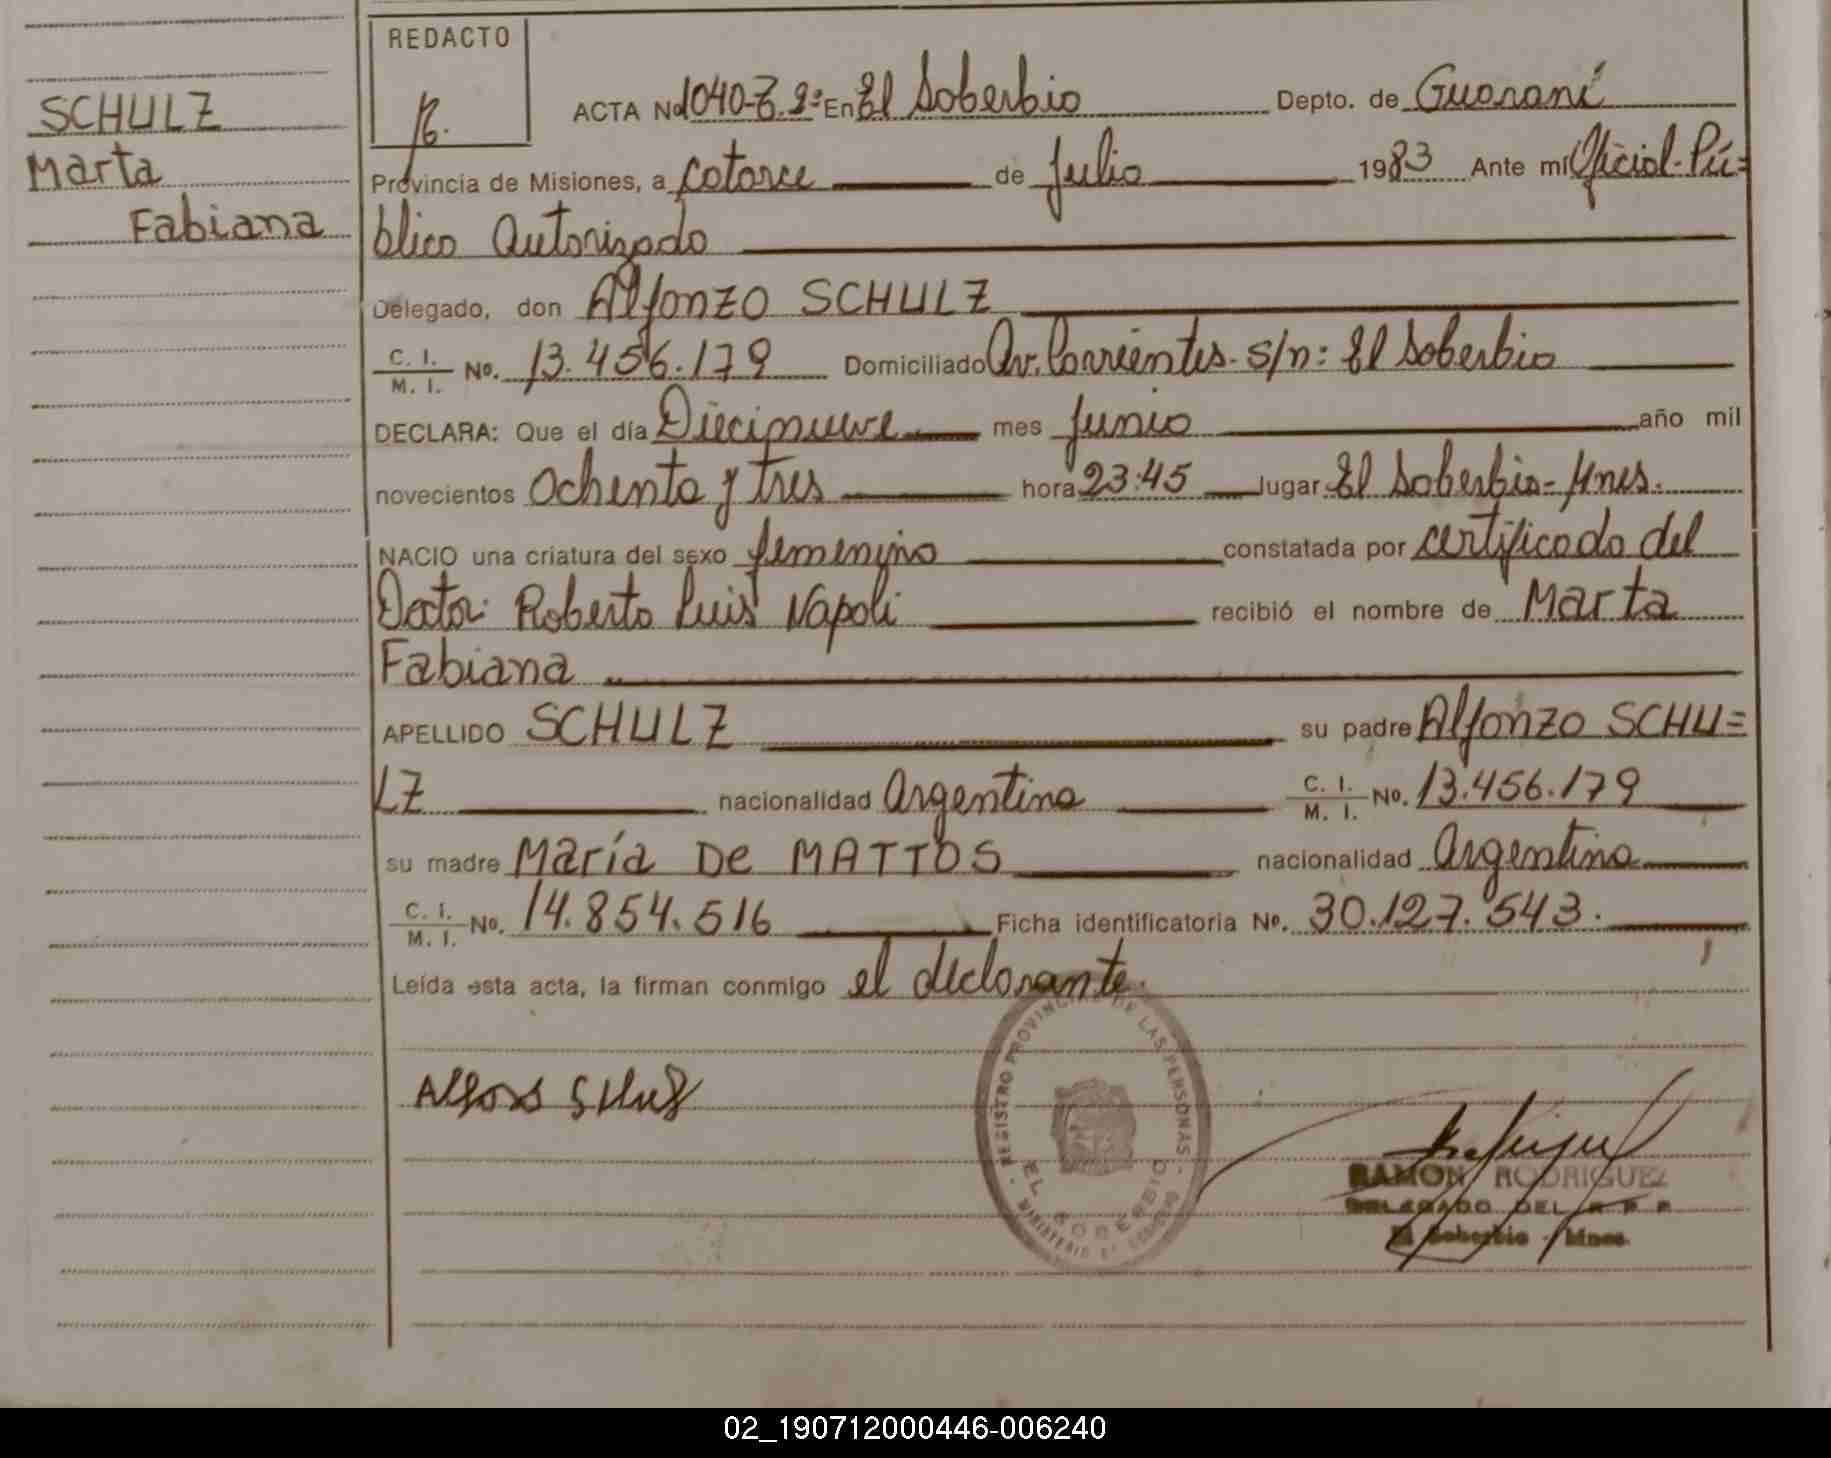 SCHULZ
Marta
Fabiana
REDACTO
ACTA No 1040-T.2º En El Soberbio Depto. de Guaraní
Provincia de Misiones, a catorce de Julio 1983 Ante mí Oficial Pú=
blico Autorizado
Delegado, don Alfonzo SCHULZ
C. I.
M. I. No. 13.456.179 Domiciliado Av. Corrientes- s/n: El Soberbio
DECLARA: Que el día Diecinueve mes Junio año mil
novecientos ochenta y tres hora 23:45 lugar El Soberbio-Mnes.
NACIO una criatura del sexo femenino constatada por certificado del
Doctor: Roberto Luis Napoli recibió el nombre de Marta
Fabiana
APELLIDO SCHULZ su padre Alfonzo SCHU=
LZ nacionalidad Argentina C. I.
M. I. No. 13.456.179
su madre María De MATTOS nacionalidad Argentina
C. I.
M. I. No. 14.854.516 Ficha identificatoria No. 30.127.543.
Leída esta acta, la firman conmigo el declarante.
REGISTRO PROVINCIAL DE LAS PERSONAS
EL SOBERBIO
RAMON RODRIGUEZ
DELEGADO DEL R P P
El Soberbio - Mnes.
02_190712000446-006240